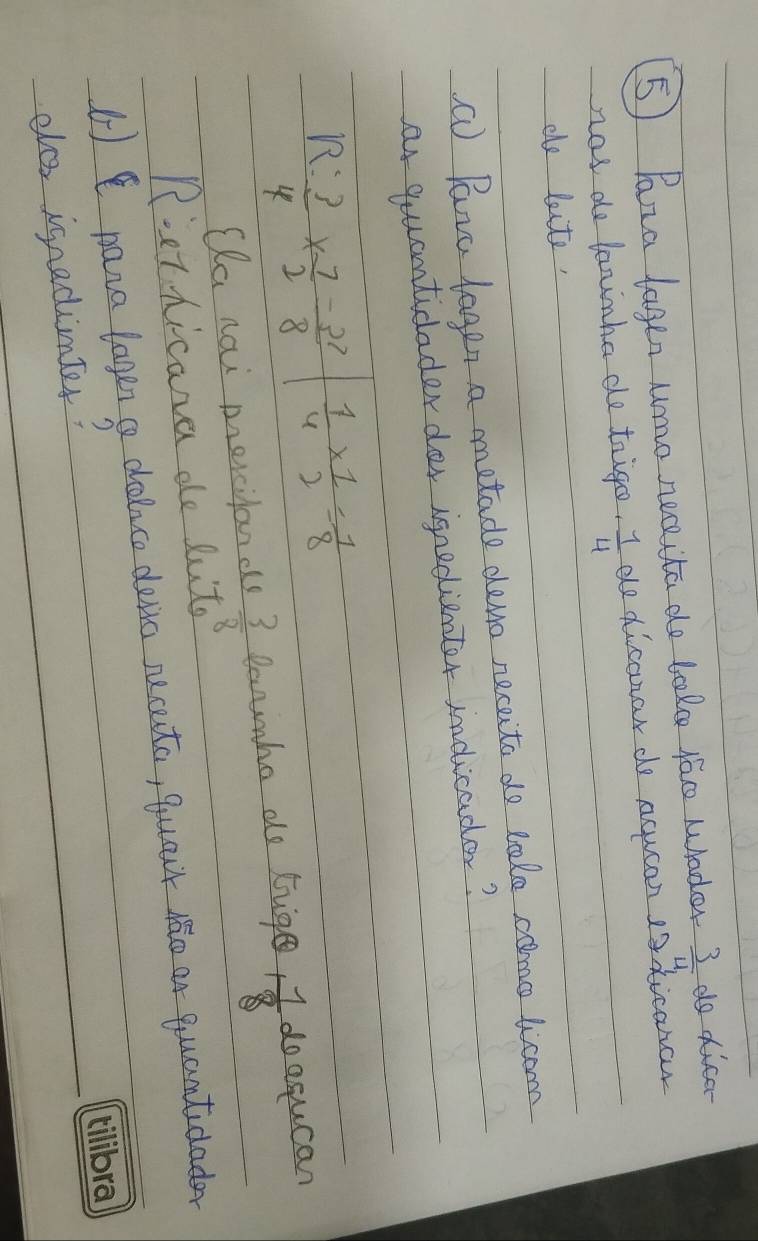 5 Para fazer uma receita de bolo são usados 3/4 de xíca-
ras de farinha de trigo, 1/4 de xícaras de açucar e 2 xicaras
de leite.
a) Para fazer a metade dessa receita de bolo como ficam
as quantidades dos igredientes indicados?
R: 3/4 x 1/2 = 3/8 | 1/4 x 1/2 = 1/8
Ela vai prescisar de 3/8 farinha de trigo, 1/8 de açucar
R: e 1 xicara de leite
b) E para fazer o dobro dessa receita, quais são as quantidades
dos igredientes?
tilibra